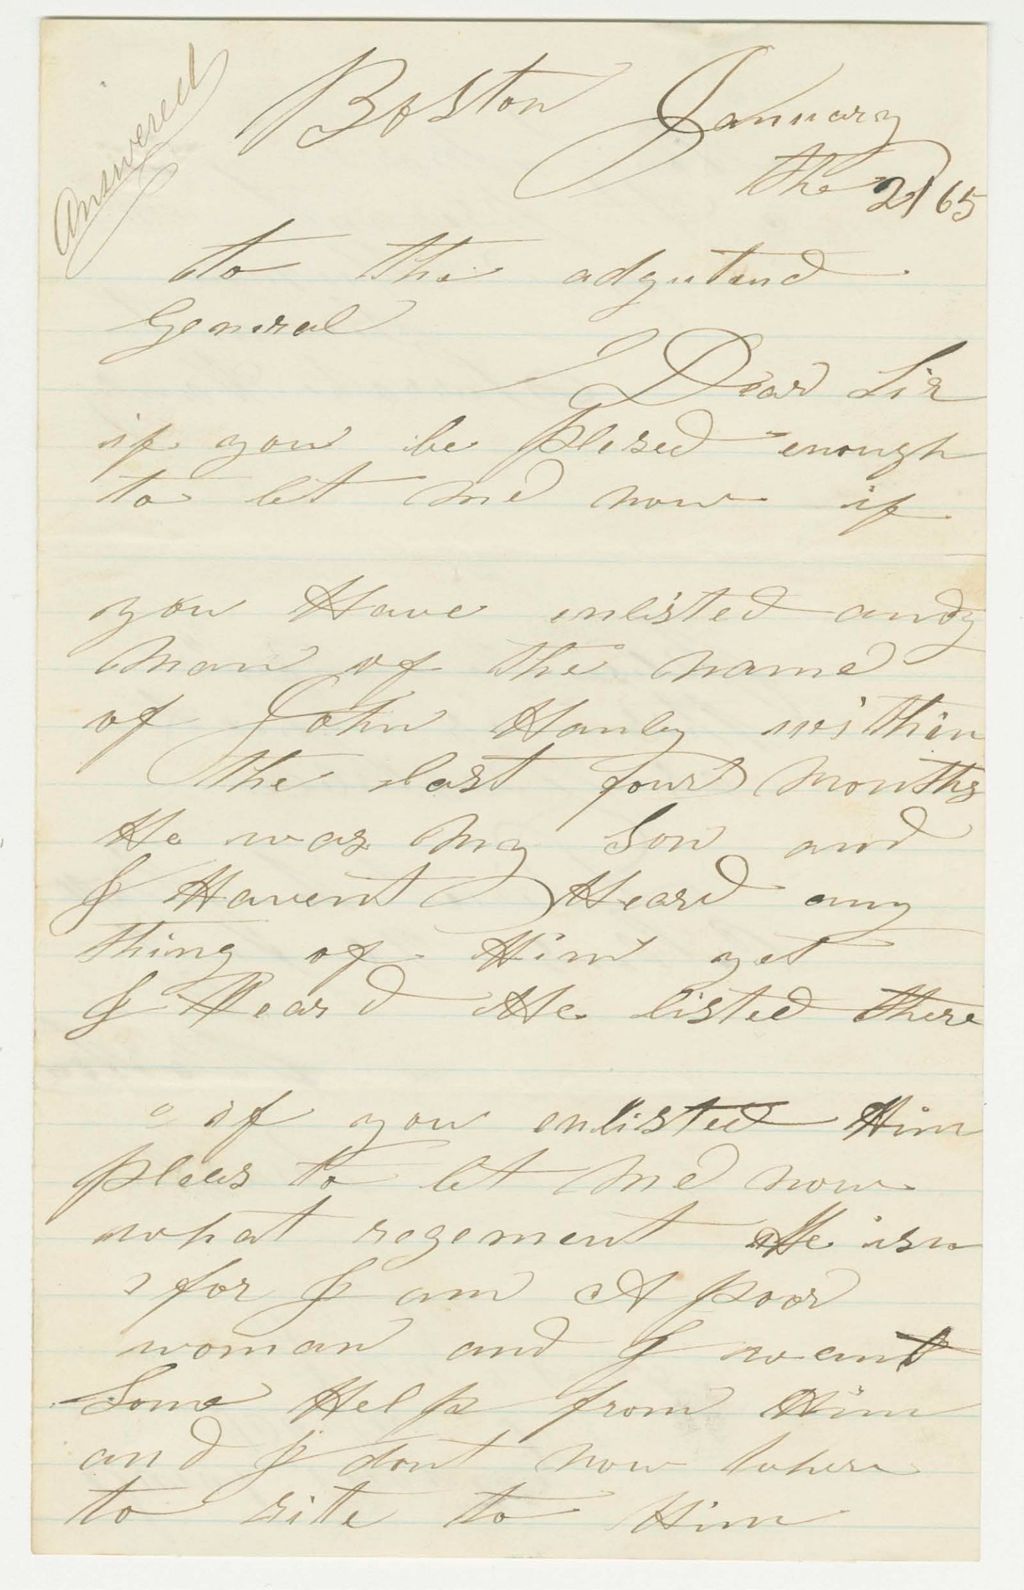 Answered
Boston January
the 21 65
to the adgutend
General
Dear Sir
if you be plesed enough
to let me now if
you Have enlisted andy
man of the name
of John Hanly within
the last four months
He was my Son and
I Havent Heard any
thing of Him yet
I Heard He listed there
if you enlisted Him
plees to let me now
what regement He is
for I am A poor
woman and I want
Some Help from Him
and I dont now where
to rite to Him